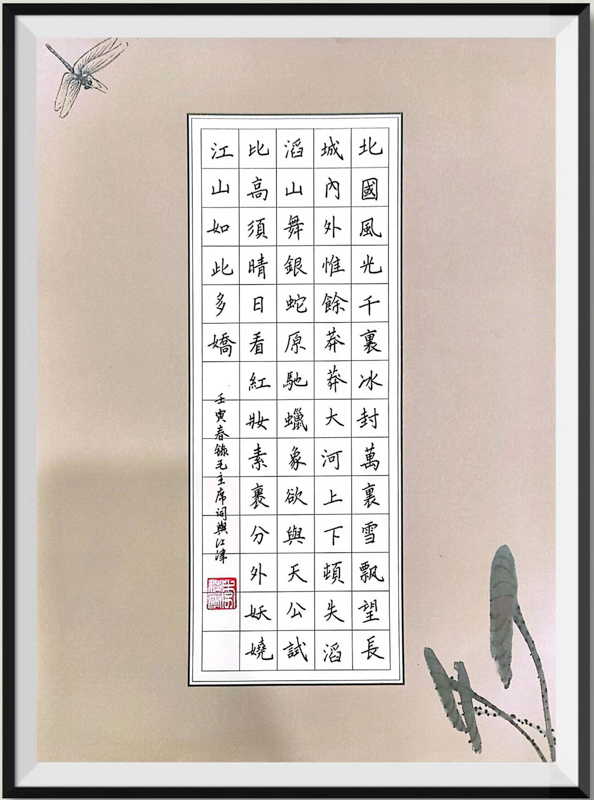 北國風光千裏冰封萬裏雪飄望長
城內外惟餘莽莽大河上下頓失滔
滔山舞銀蛇原馳蠟象欲與天公試
比高須晴日看紅妝素裹分外妖嬈
江山如此多嬌
壬寅春錄毛主席詞與江津